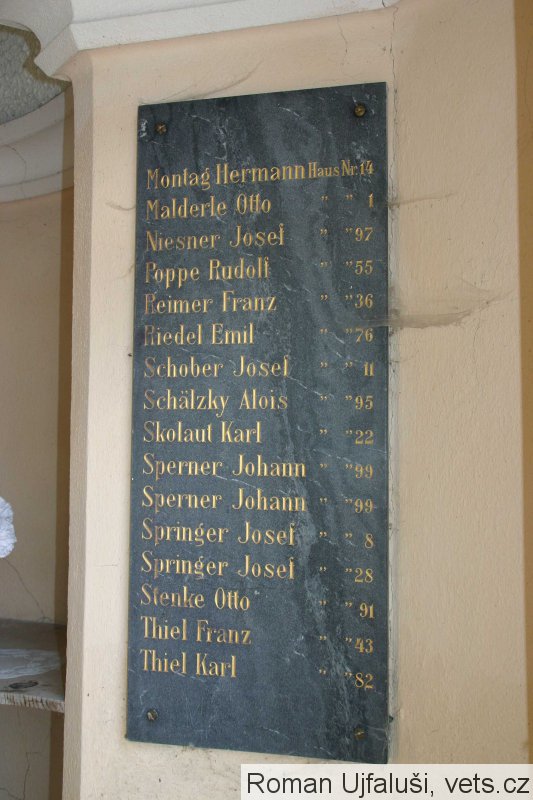 Montag Hermann Haus Nr. 14
Malderle Otto " " 1
Niesner Josef " " 97
Poppe Rudolf " " 55
Reimer Franz " " 36
Riedel Emil " " 76
Schober Josef " " 11
Schälzky Alois " " 95
Skolaut Karl " " 22
Sperner Johann " " 99
Sperner Johann " " 99
Springer Josef " " 8
Springer Josef " " 28
Stenke Otto " " 91
Thiel Franz " " 43
Thiel Karl " " 82
Roman Ujfaluši, vets.cz